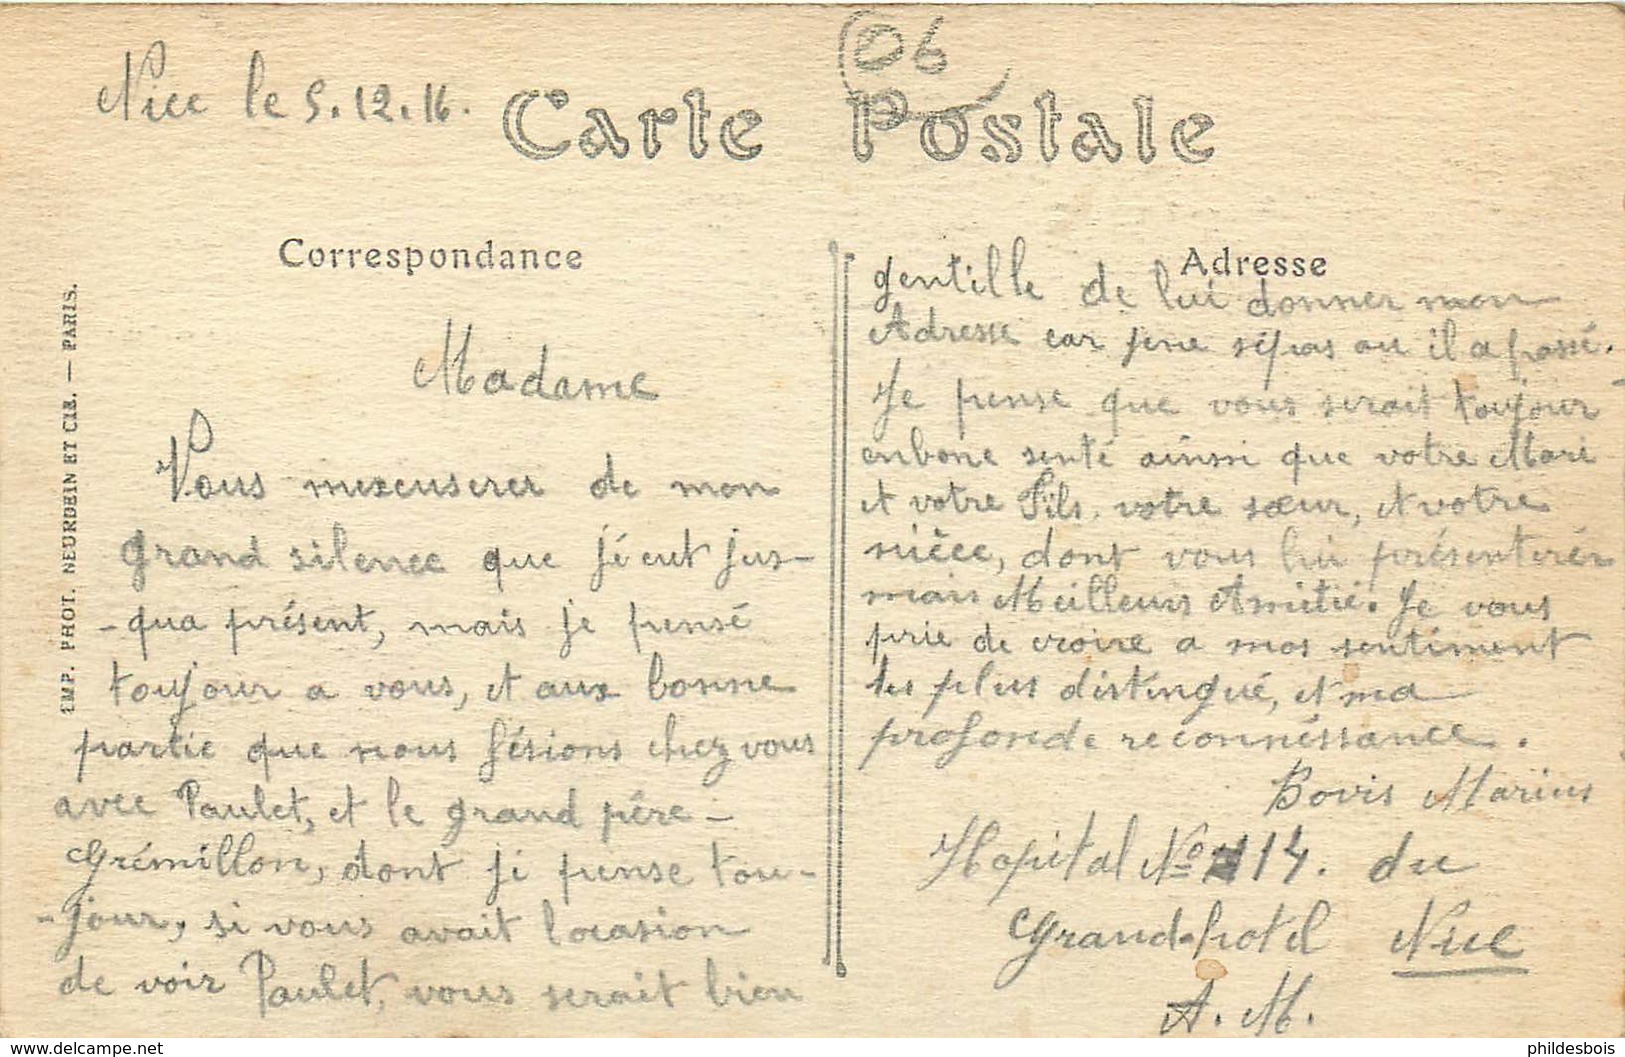 06
Nice le 5.12.16.
Carte Postale
Correspondance
Adresse
IMP. PHOT. NEURDEIN ET CIE. — PARIS.
Madame
Vous mexcuserer de mon
grand silence que jé eut jus-
-qua présent, mais je pensé
toujour a vous, et aux bonne
partie que nous fésions chez vous
avec Paulet, et le grand pére-
Grémillon, dont je pense tou-
-jour, si vous avait locasion
de voir Paulet, vous serait bien
gentille de lui donner mon
Adresse car jene sépas ou il a passé.
Je pense que vous serait toujour
enbone senté ainssi que votre Mari
et votre Fils. votre sœur, et votre
nièce, dont vous lui présenterér
mais Meilleurs Amitié. Je vous
prie de croire a mos sentiment
les plus distingué, et ma
profonde reconnéssance.
Bovis Marius
Hopital No 114. du
Grand-hotel Nice
A. M.
phildesbois
www.delcampe.net